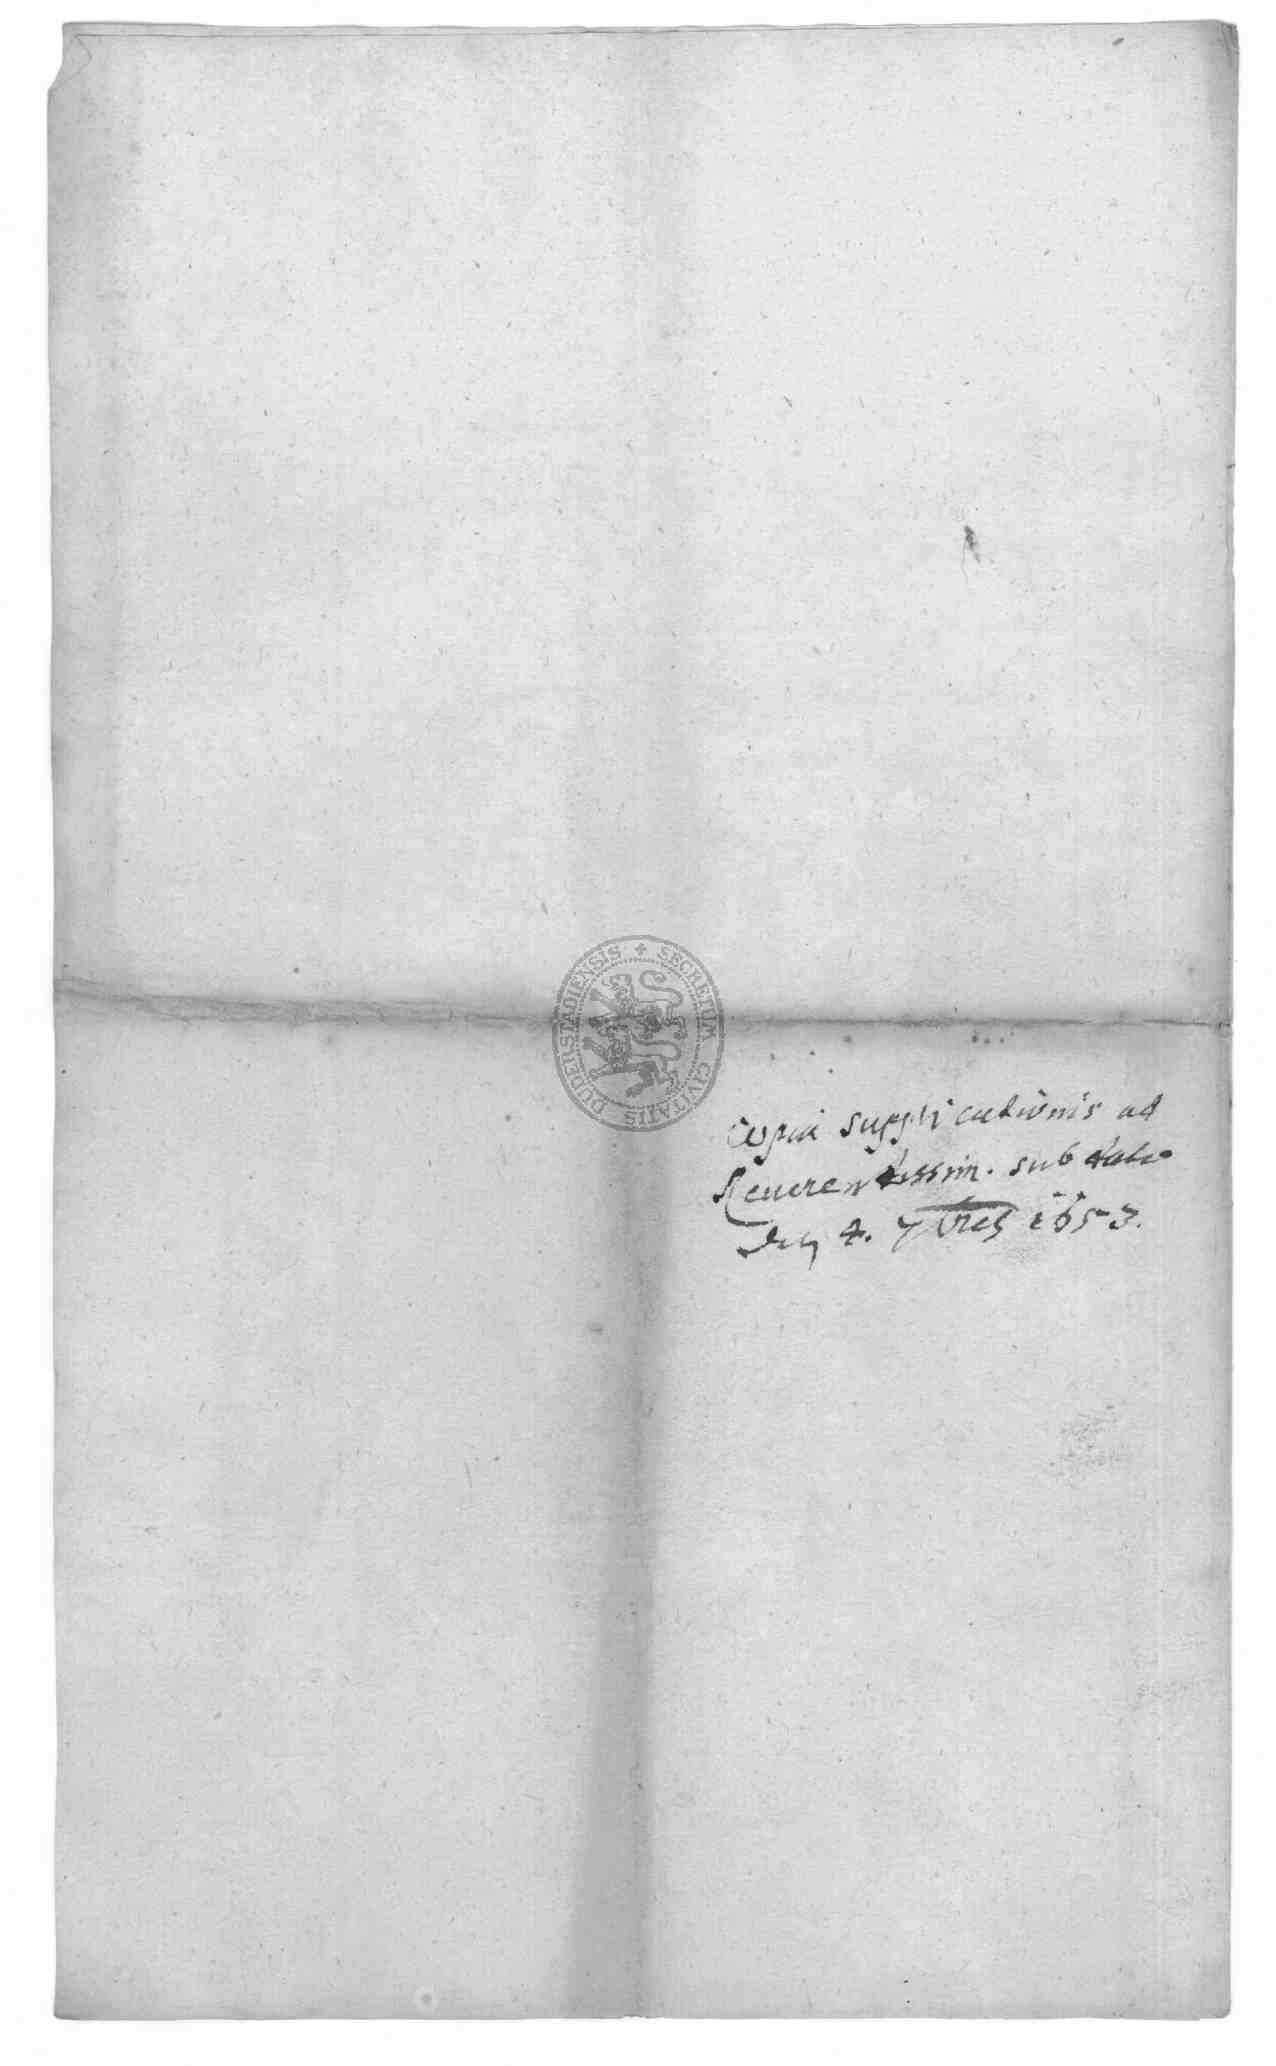 SECRETUM CIVITATIS DUDERSTADIENSIS
Copia supplicationis ad
Reverendissim. sub dato
den 4. 7bris 1653.